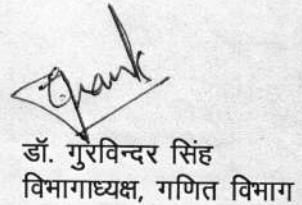 डॉ. गुरविन्दर सिंह
विभागाध्यक्ष, गणित विभाग